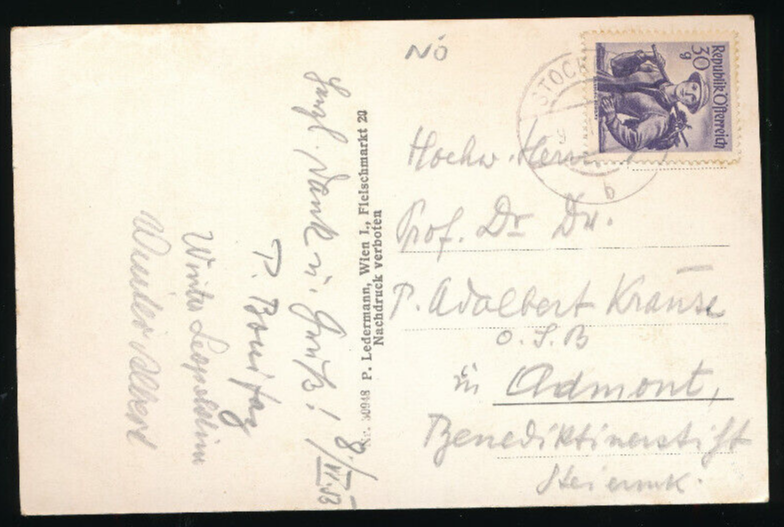 NÖ
Herzl. Dank u. Gruß!
8./VI.53
P. Bonifaz
Winter Leopoldine
Winter Albert
Nr. 30948 P. Ledermann, Wien I., Fleischmarkt 20
Nachdruck verboten
STOCK
b
Republik Österreich
30
g
Hochw. Herrn
Prof. Dr Dr.
P. Adalbert Krause
O.S.B
in Admont,
Benediktinerstift
Steiermk.